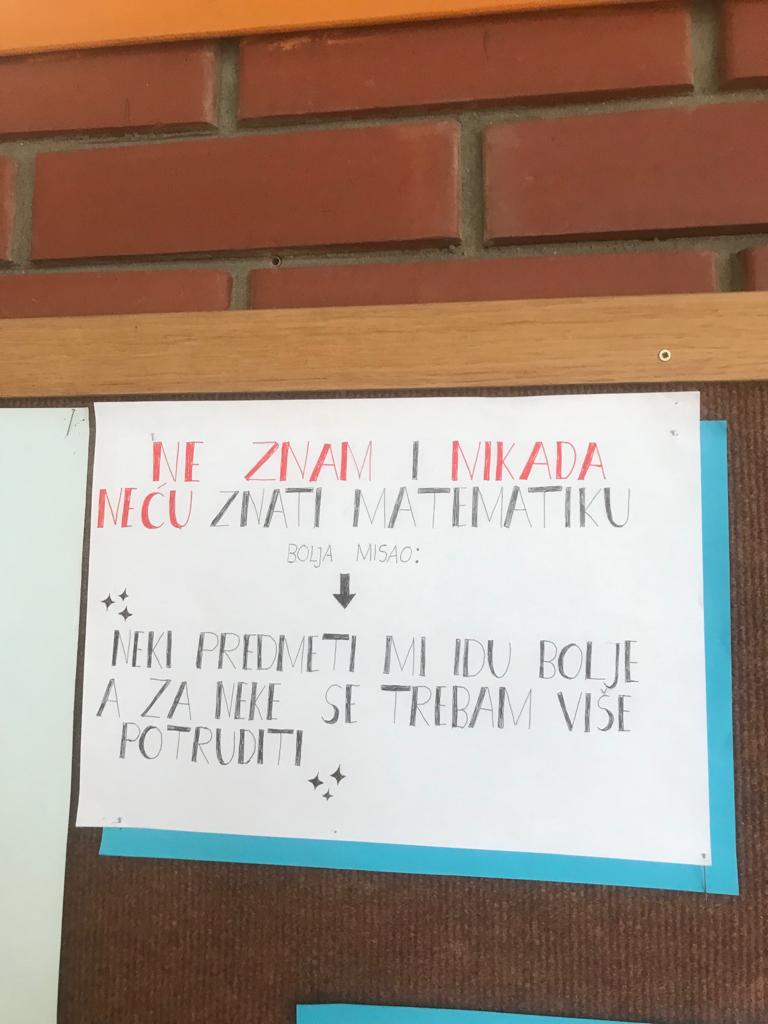 NE ZNAM I NIKADA
NEĆU ZNATI MATEMATIKU
BOLJA MISAO:
NEKI PREDMETI MI IDU BOLJE
A ZA NEKE SE TREBAM VIŠE
POTRUDITI